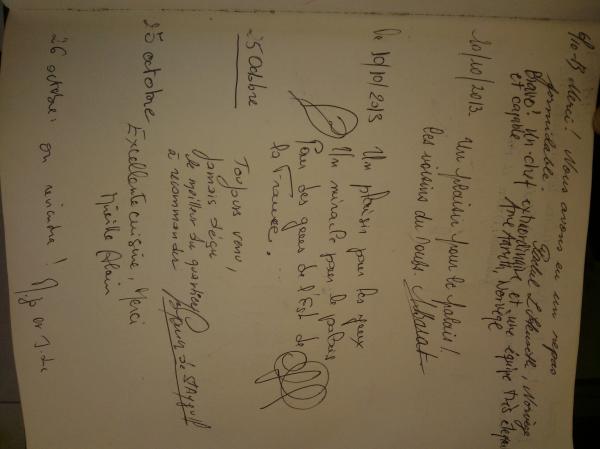 6/10-13 Merci! Nous avons eu un repas
formidable.
Bravo! Un chef extraordinaire et une équipe très
et capable. Norvège
10/10/2013 Un plaisir pour le palais!
Les voisins du
Le 10/10/2013 Un plaisir pour les yeux
Un miracle pour le palais
Pour des gens de l'Est de
la France.
25 Octobre
Toujours venu,
jamais déçu
le meilleur du quartier
à recommander
25 octobre
Excellente cuisine, Merci
Mireille Alain
26 octobre: on reviendra!